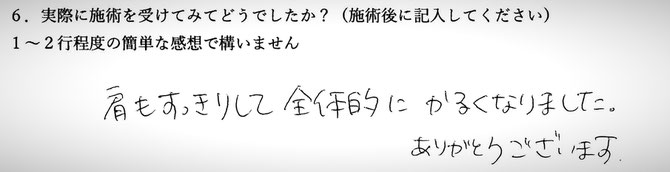 6．実際に施術を受けてみてどうでしたか？（施術後に記入してください）
1～2行程度の簡単な感想で構いません
肩もすっきりして 全体的に かるくなりました。
ありがとうございます.